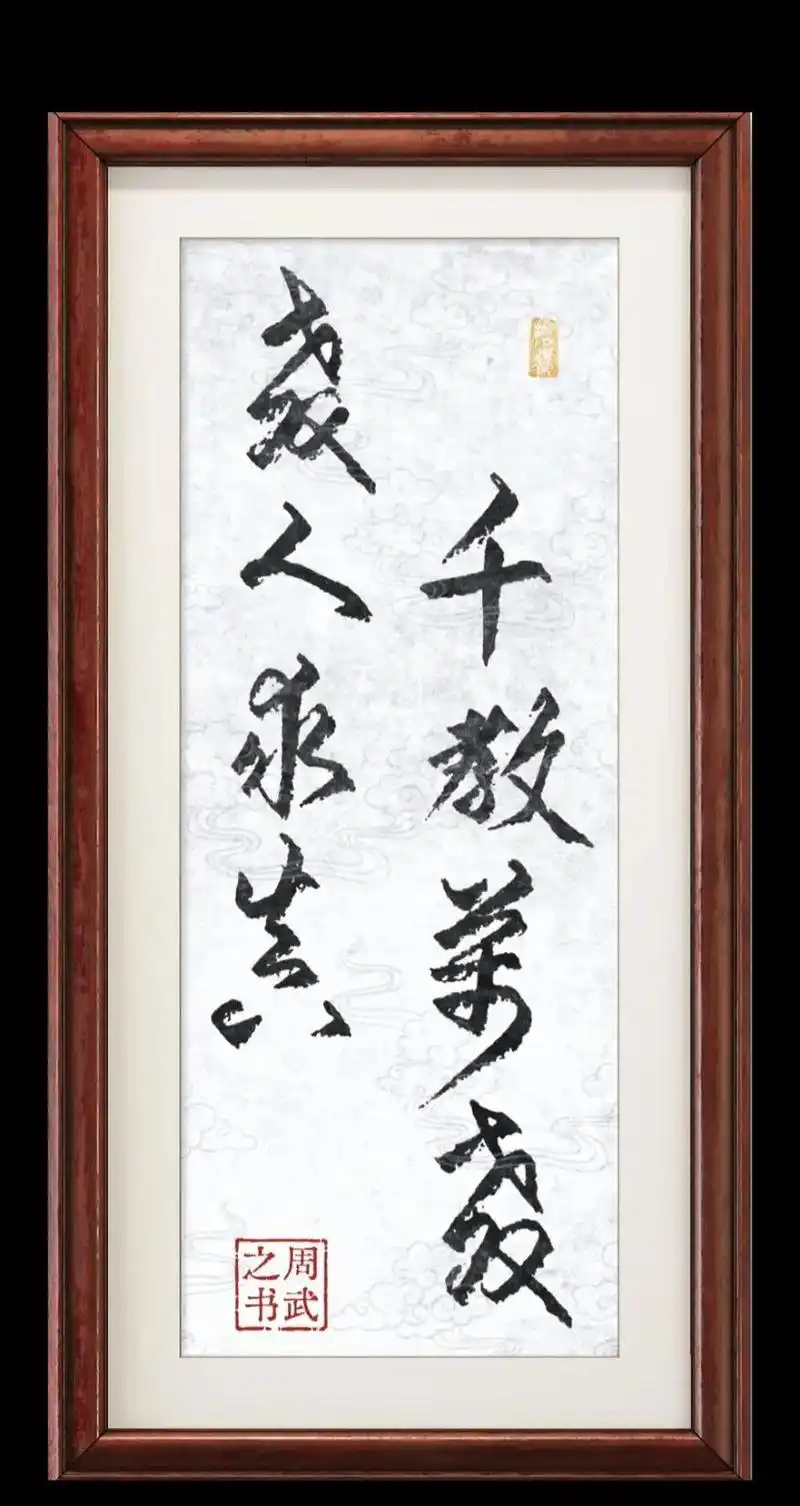 千教萬教
教人求真
周武
之书